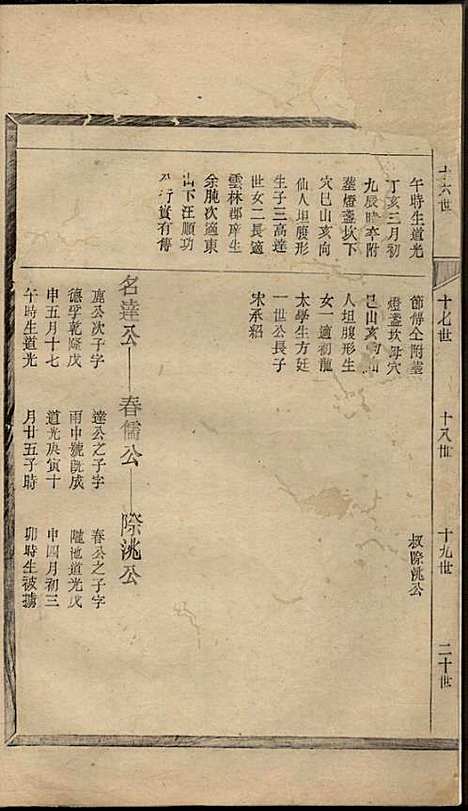 十六世
十七世
十八世
十九世
二十世
午時生道光
丁亥三月初
九辰時卒附
塟燈盞坎下
穴巳山亥向
仙人坦腹形
生子三高達
世女二長適
雲林郡庠生
余腕次適東
山下汪順功
行實有傳
節傅仝附塟
燈盞坎母穴
巳山亥向仙
人坦腹形生
女一適初龍
太學生方廷
一世公長子
宋承紹
叔際洮公
名達公——春儒公——際洮公
廌公次子字
德孚乾隆戊
申五月十七
午時生道光
達公之子字
雨中號既成
道光庚寅十
月廿五子時
春公之子字
隴池道光戊
申四月初三
卯時生被擄